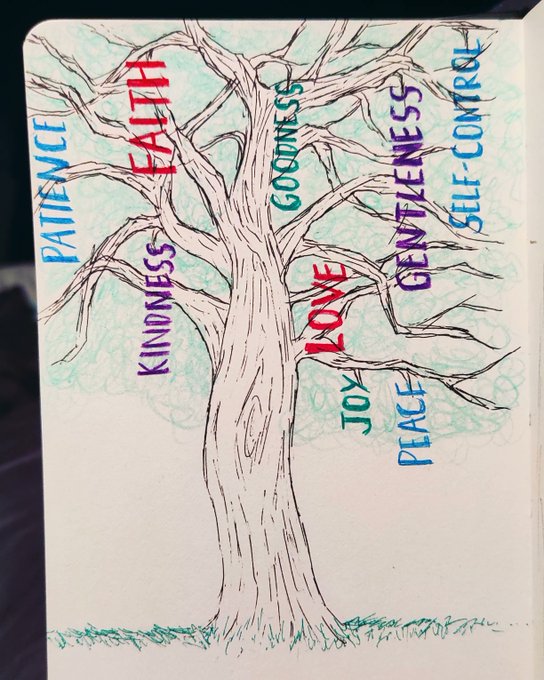 PATIENCE
FAITH
KINDNESS
GOODNESS
LOVE
JOY
GENTLENESS
PEACE
SELF-CONTROL